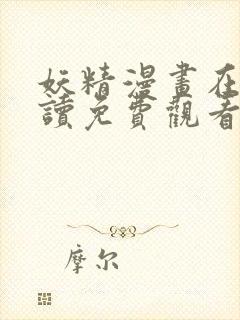 妖精漫畫在
讀免費觀看
摩尔